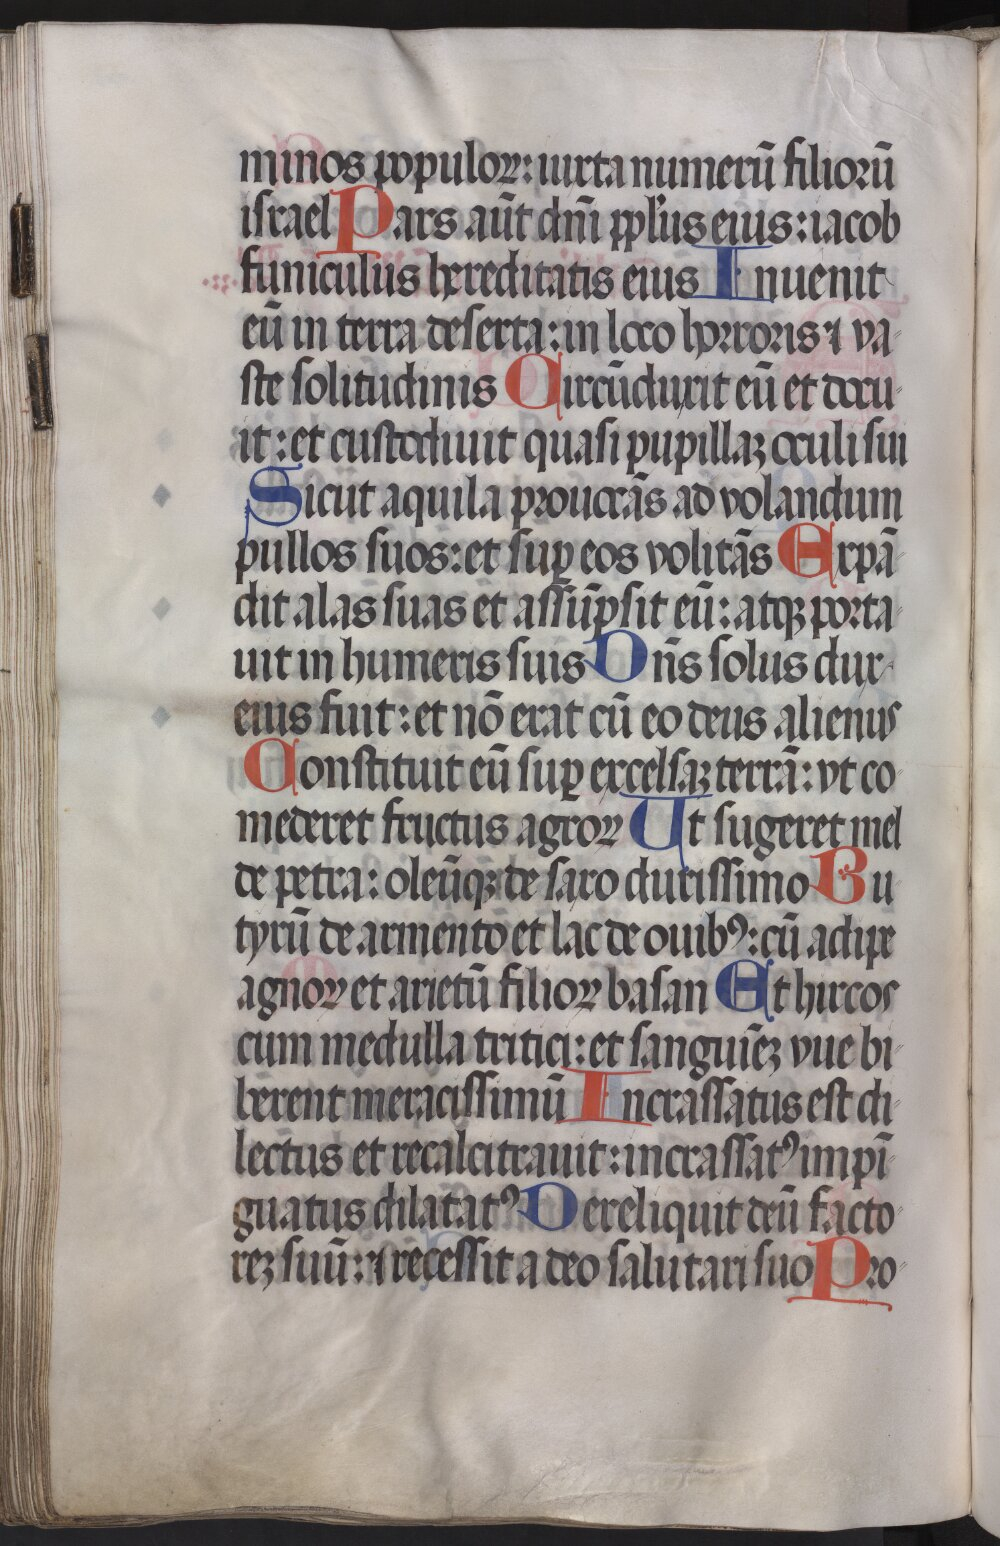 minos populoꝝ: iuxta numerū filiorū
israel Pars aūt dn̄i ppl'us eius: iacob
funiculus hereditatis eius Inuenit
eū in terra deserta: in loco horroris ⁊ va⸗
ste solitudinis Circūduxit eū et docu⸗
it: et custodiuit quasi pupillaꝫ oculi sui
Sicut aquila prouocās ad volandum
pullos suos: et suꝑ eos volitās Expā⸗
dit alas suas et assūpsit eū: atqꝫ porta⸗
uit in humeris suis Dn̄s solus dux⸗
eius fuit: et nō erat cū eo deus alienus
Constituit eū suꝑ excelsaꝫ terrā: vt co⸗
mederet fructus agroꝝ Ut sugeret mel
de petra: oleūqꝫ de saxo durissimo Bu
tyrū de armento et lac de ouibꝰ: cū adipe
agnoꝝ et arietū filioꝝ basan Et hircos
cum medulla tritici: et sanguīeꝫ vue bi⸗
berent meracissimū Incrassatus est di⸗
lectus et recalcitrauit: incrassatꝰ impī⸗
guatus dilatatꝰ Dereliquit deū facto⸗
reꝫ suū: ⁊ recessit a deo salutari suo Pro⸗